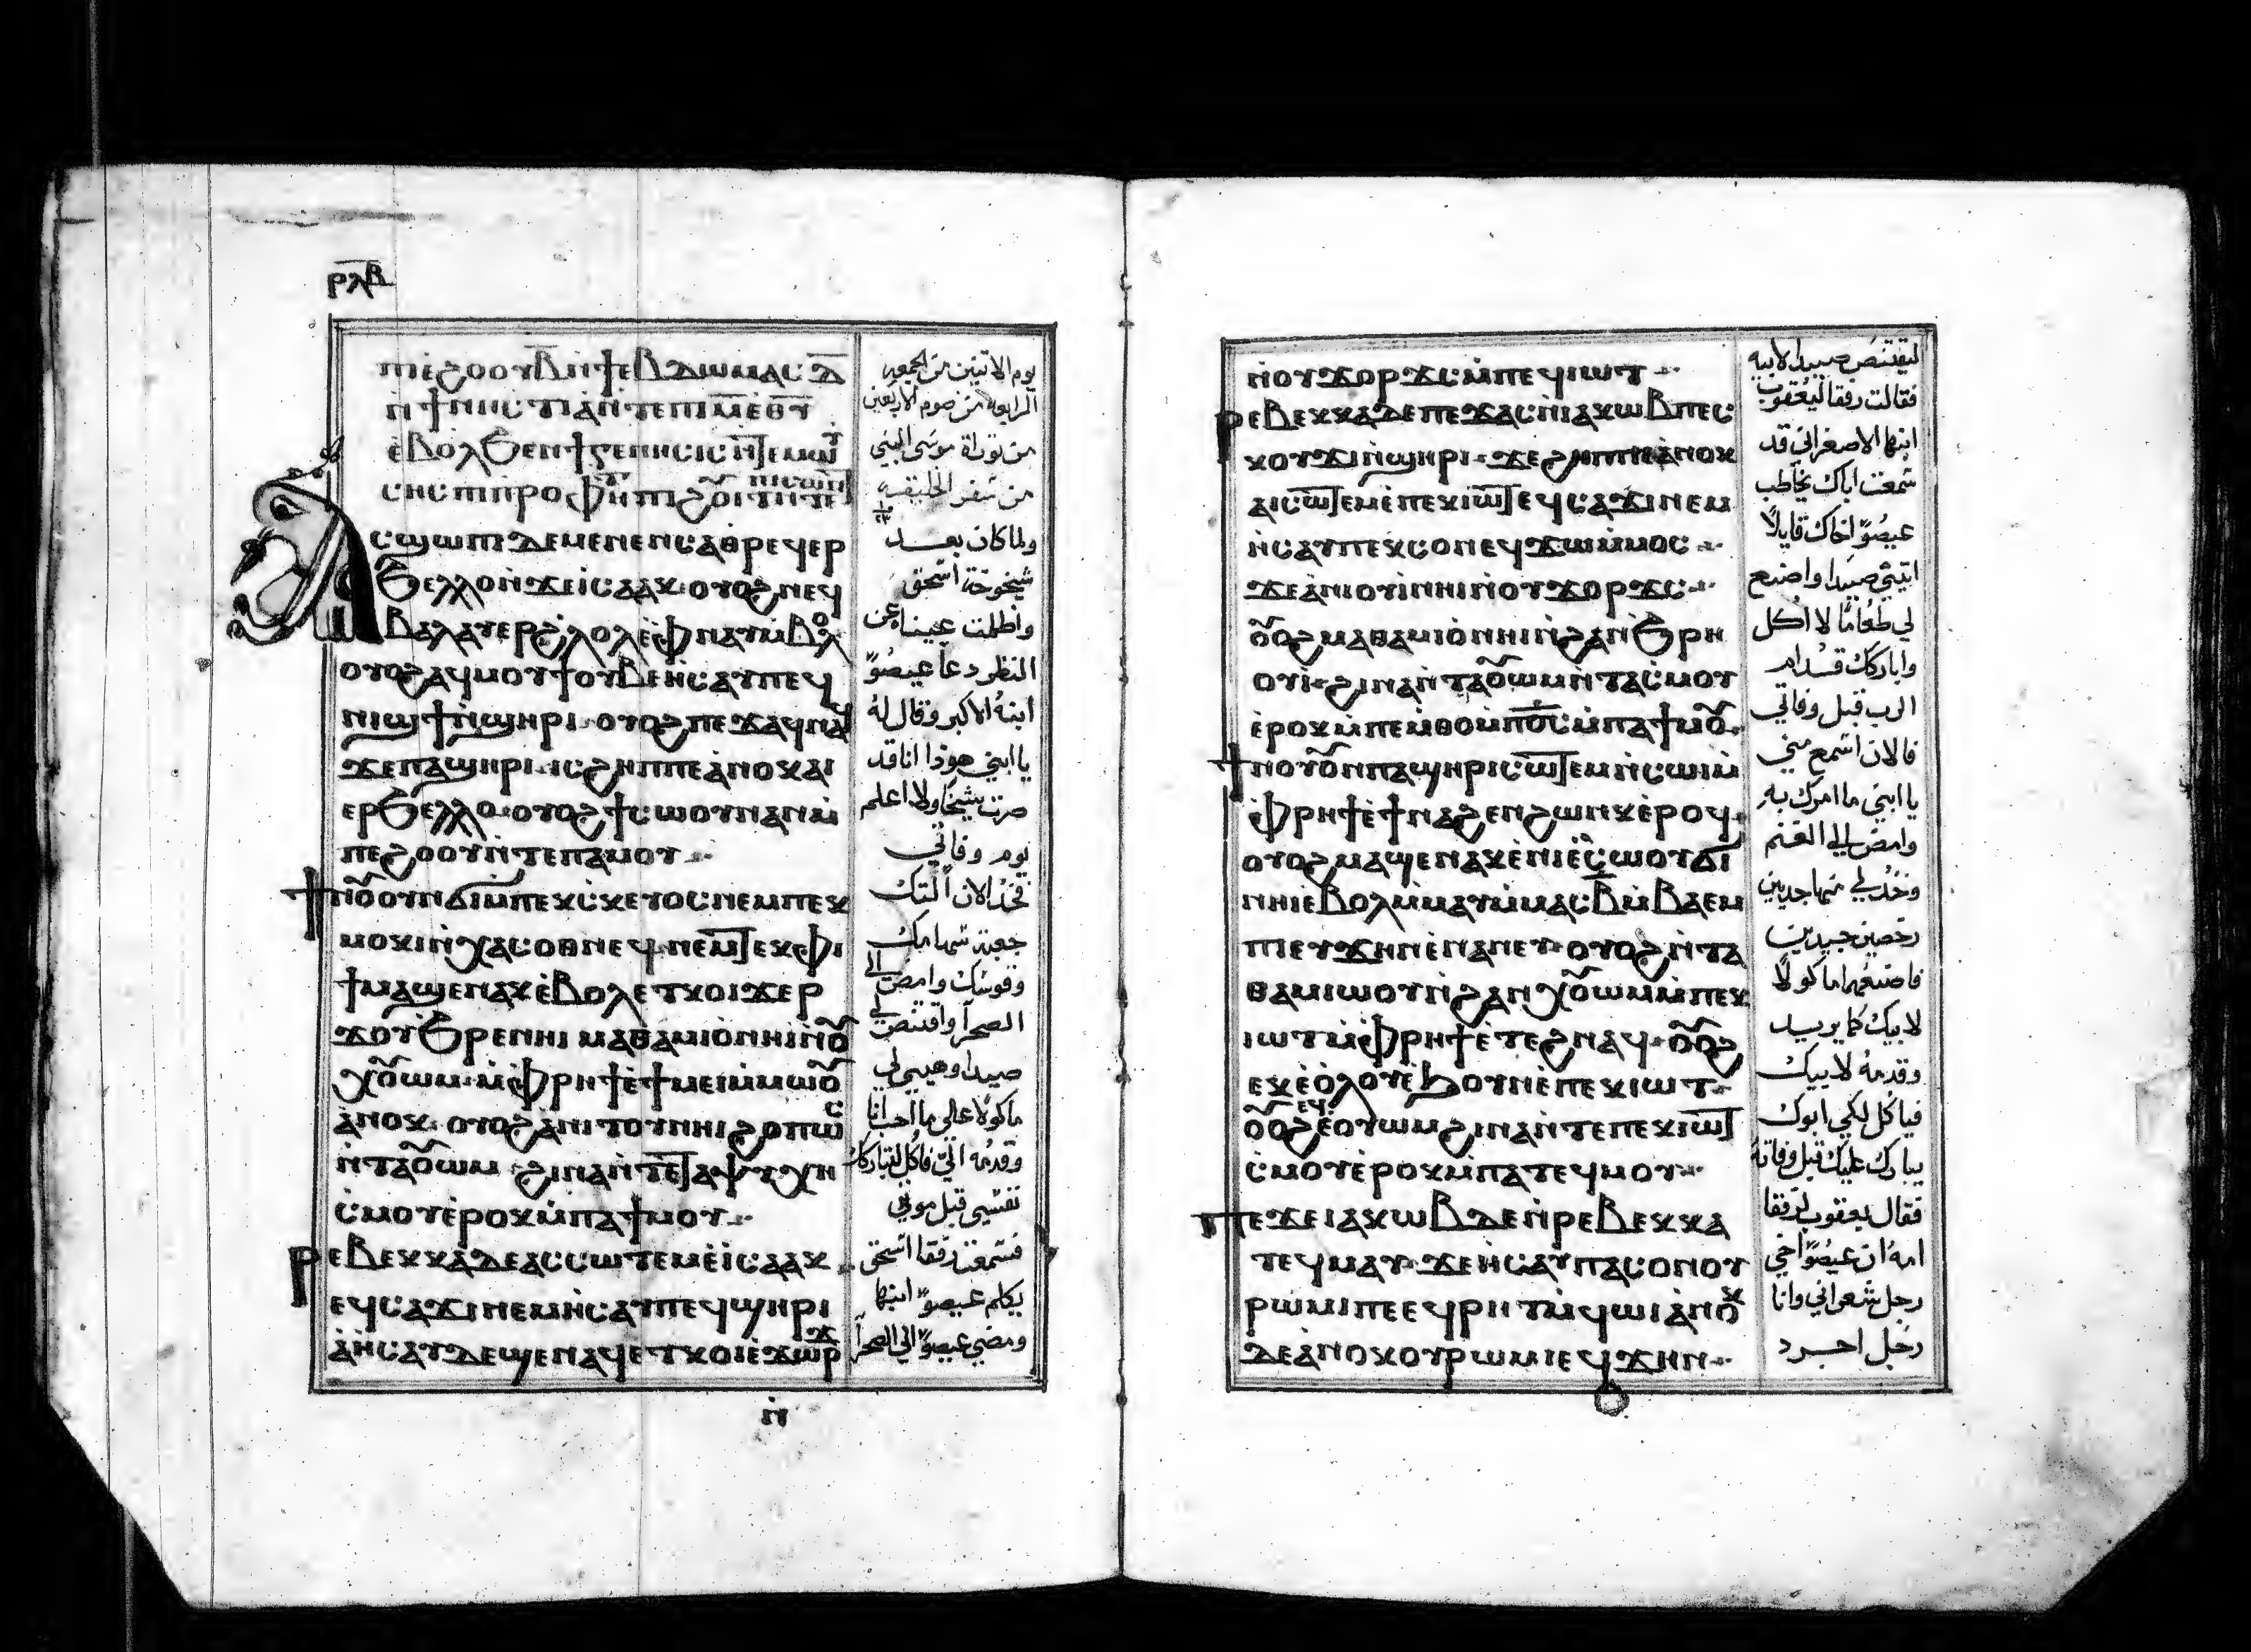 ⲣⲗⲃ
ⲡⲓⲉϩⲟⲟⲩ ⲃ ⲛϯⲉⲃⲇⲱⲙⲁⲥ ⲇ
ⲛϯⲛⲏⲥⲧⲓⲁ ⲛⲧⲉ ⲡⲓⲙⲉ
ⲉⲃⲟⲗϧⲉⲛ ϯⲅⲉⲛⲏⲥⲓⲥ ⲛⲧⲉ ⲙⲱⲩ
ⲥⲏⲥ ⲡⲓⲡⲣⲟⲫⲏⲧ
ⲁⲥϣⲱⲡⲓ ⲇⲉ ⲙⲉⲛⲉⲛⲥⲁ ⲑⲣⲉϥⲉⲣ
ϧⲉⲗⲗⲟ ⲛϫⲉ ⲓⲥⲁⲁⲕ ⲟⲩⲟϩ ⲛⲉϥ
ⲃⲁⲗ ⲁⲩⲉⲣϩⲗⲟⲗ ⲉϥⲛⲁⲩ ⲙⲃⲟⲗ
ⲟⲩⲟϩ ⲁϥⲙⲟⲩϯ ⲟⲩⲃⲉ ⲏⲥⲁⲩ ⲡⲉϥ
ⲛⲓϣϯ ⲛϣⲏⲣⲓ ⲟⲩⲟϩ ⲡⲉϫⲁϥ ⲛⲁϥ
ϫⲉ ⲡⲁϣⲏⲣⲓ ⲓⲥ ϩⲏⲡⲡⲉ ⲁⲛⲟⲕ ⲁⲓ
ⲉⲣϧⲉⲗⲗⲟ ⲟⲩⲟϩ ϯⲥⲱⲟⲩⲛ ⲁⲛ ⲙ
ⲡⲉϩⲟⲟⲩ ⲛⲧⲉ ⲡⲁⲙⲟⲩ
ϯⲛⲟⲟⲩ ⲛ ϭⲓ ⲙⲡⲉⲕⲥⲕⲉⲩⲟⲥ ⲛⲉⲙ ⲡⲉⲕ
ⲙⲟⲕⲓ ⲛⲭⲁⲥⲟⲑⲛⲉϥ ⲛⲉⲙ ⲧⲉⲕⲫⲓ
ϯ ⲙⲁϣⲉⲛⲁⲕ ⲉⲃⲟⲗ ⲉⲧⲕⲟⲓ ϫⲉⲣ
ϫⲟⲩϧⲣⲉ ⲛⲏⲓ ⲙⲁⲑⲁⲙⲓⲟ ⲛⲏⲓ ⲛⲟⲩ
ϭⲓⲛⲟⲩⲱⲙ ⲙⲫⲣⲏϯ ⲉϯⲙⲉⲓ ⲙⲙⲱⲟⲩ
ⲁⲛⲟⲕ ⲟⲩⲟϩ ⲁⲛⲓⲧⲟⲩ ⲛⲏⲓ ϩⲟⲡⲱⲥ
ⲛⲧⲁⲟⲩⲱⲙ ϩⲓⲛⲁ ⲛⲧⲉ ⲧⲁⲯⲩⲭⲏ
ⲥⲙⲟⲩ ⲉⲣⲟⲕ ⲙⲡⲁϯⲙⲟⲩ
ⲣⲉⲃⲉⲕⲕⲁ ⲇⲉ ⲁⲥⲥⲱⲧⲉⲙ ⲉⲓⲥⲁⲁⲕ
ⲉϥⲥⲁϫⲓ ⲛⲉⲙ ⲏⲥⲁⲩ ⲡⲉϥϣⲏⲣⲓ
ⲁ ⲏⲥⲁⲩ ⲇⲉ ϣⲉⲛⲁϥ ⲉⲧⲕⲟⲓ ⲉϫⲱⲣϫ
ⲛ
يوم الاتنين من الجمعه
الرابعه من صوم الاربعين
من توراة موسى النبي
من سفر الخليقه
ولما كان بعد
شيخوخة اسحق
واظلمت عيناه عن
النظر دعا عيصو
ابنه الاكبر وقال له
يا ابني هوذا انا قد
صرت شيخا ولا اعلم
يوم وفاتي
فخذ الان التك
جعبة سهامك
وقوسك وامض الى
الصحرا واقتنص لي
صيدا وهيي لي
ماكولا على ما احب انا
وقدمه الي فاكل لتباركك
نفسي قبل موتي
فسمعت رفقا اسحق
يكلم عيصو ابنها
ومضي عيصو الى الصحرا
ⲛⲟⲩϫⲟⲣϫⲥ ⲙⲡⲉϥⲓⲱⲧ
ⲣⲉⲃⲉⲕⲕⲁ ⲇⲉ ⲡⲉϫⲁⲥ ⲛⲓⲁⲕⲱⲃ ⲡⲉⲥ
ⲕⲟⲩϫⲓ ⲛϣⲏⲣⲓ ϫⲉ ϩⲏⲡⲡⲉ ⲁⲛⲟⲕ
ⲁⲓⲥⲱⲧⲉⲙ ⲉⲡⲉⲕⲓⲱⲧ ⲉϥⲥⲁϫⲓ ⲛⲉⲙ
ⲏⲥⲁⲩ ⲡⲉⲕⲥⲟⲛ ⲉϥϫⲱ ⲙⲙⲟⲥ
ϫⲉ ⲁⲛⲓⲟⲩⲓ ⲛⲏⲓ ⲛⲟⲩϫⲟⲣϫⲥ
ⲟⲩⲟϩ ⲙⲁⲑⲁⲙⲓⲟ ⲛⲏⲓ ⲛϩⲁⲛϧⲣⲏ
ⲟⲩⲓ ϩⲓⲛⲁ ⲛⲧⲁⲟⲩⲱⲙ ⲛⲧⲁⲥⲙⲟⲩ
ⲉⲣⲟⲕ ⲙⲡⲉⲙⲑⲟ ⲙⲡⲟⲥ ⲙⲡⲁϯⲙⲟⲩ
ϯⲛⲟⲩ ⲟⲩⲛ ⲡⲁϣⲏⲣⲓ ⲥⲱⲧⲉⲙ ⲛⲥⲱⲓ ⲙ
ⲫⲣⲏϯ ⲉϯⲛⲁϩⲉⲛϩⲱⲛⲕ ⲉⲣⲟϥ
ⲟⲩⲟϩ ⲙⲁϣⲉⲛⲁⲕ ⲉⲛⲓⲉⲥⲱⲟⲩ ϭⲓ
ⲛⲏⲓ ⲉⲃⲟⲗ ⲙⲙⲁⲩ ⲙⲙⲁⲥ ⲃ ⲙⲃⲁⲉⲙ
ⲡⲓ ⲉⲩϫⲏⲛ ⲉⲛⲁⲛⲉⲩ ⲟⲩⲟϩ ⲛⲧⲁ
ⲑⲁⲙⲓⲱⲟⲩ ⲛϩⲁⲛϭⲓⲛⲟⲩⲱⲙ ⲙⲡⲉⲕ
ⲓⲱⲧ ⲙⲫⲣⲏϯ ⲉⲧⲉϩⲛⲁϥ ⲟⲩⲟϩ
ⲉⲕⲉⲟⲗⲟⲩ ⲉϧⲟⲩⲛ ⲉⲡⲉⲕⲓⲱⲧ
ⲟⲩⲟϩ ⲉϥⲉⲟⲩⲱⲙ ϩⲓⲛⲁ ⲛⲧⲉ ⲡⲉⲕⲓⲱⲧ
ⲥⲙⲟⲩ ⲉⲣⲟⲕ ⲙⲡⲁⲧⲉϥⲙⲟⲩ
ⲡⲉϫⲉ ⲓⲁⲕⲱⲃ ⲇⲉ ⲛⲣⲉⲃⲉⲕⲕⲁ
ⲧⲉϥⲙⲁⲩ ϫⲉ ⲏⲥⲁⲩ ⲡⲁⲥⲟⲛ ⲟⲩ
ⲣⲱⲙⲓ ⲡⲉ ⲉϥⲣⲏⲧ ⲙϥⲱⲓ ⲁⲛⲟⲕ
ⲇⲉ ⲁⲛⲟⲕ ⲟⲩⲣⲱⲙⲓ ⲉϥϫⲏⲛ
ليقتنص صيدا لابيه
فقالت رفقا ليعقوب
ابنها الاصغر اني قد
سمعت اباك يخاطب
عيصو اخاك قايلا
ايتيني صيدا واصنع
لي طعاما لا اكل
واباركك قدام
الرب قبل وفاتي
فالان اسمع مني
يا ابني ما امرك به
وامض الى الغنم
وخذ لي منها جديين
رخصين جيدين
فاصنعهما ماكولا
لابيك كما يريد
وقدمه لابيك
فياكل لكي ابوك
يبارك عليك قبل وفاته
فقال يعقوب لرفقا
امه ان عيصو اخي
رجل شعراني وانا
رجل اجرد